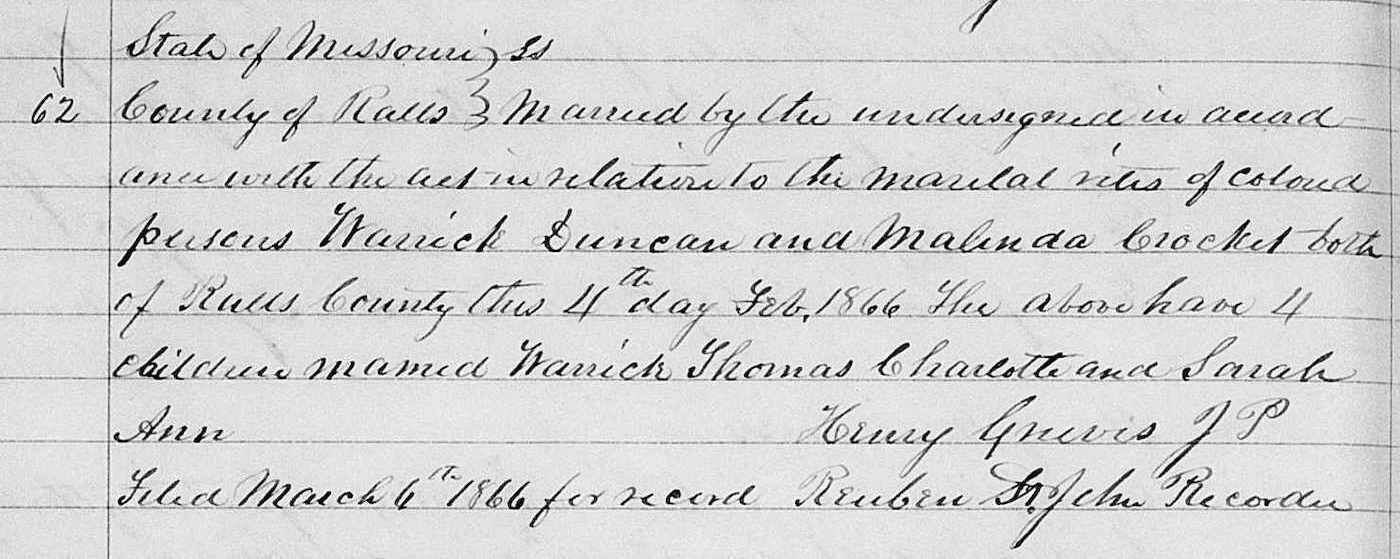 State of Missouri } Ss
62 County of Ralls } Married by the undersigned in accord
ance with the act in relation to the marital rites of colored
persons Warrick Duncan and Malinda Crocket both
of Ralls County this 4th day Feb. 1866 The above have 4
children mamed Warrick Thomas Charlotte and Sarah
Ann Henry Grievis J P
Filed March 6th 1866 for record Reuben St. John Recorder